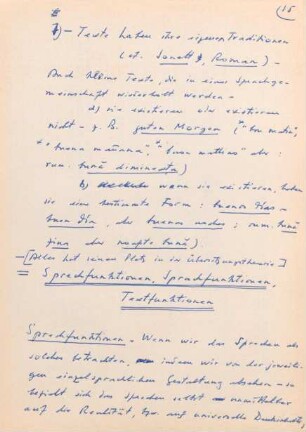 15
f) – Texte haben ihre eigenen Traditionen
(cf. Sonett, Roman) –
Auch kleine Texte, die in einer Sprachge-
meinschaft wiederholt werden –
a) sie existieren oder existieren
nicht – z. B. guten Morgen (*bon matin,
*buena mañana, *buon mattino aber:
rum. bună dimineața)
b) wenn sie existieren, haben
sie eine bestimmte Form: buenos días –
buon dì, aber buenas noches: rum. bună
ziua aber noapte bună).
– [Alles hat seinen Platz in der Übersetzungstheorie]
= Sprachfunktionen, Sprechfunktionen,
Textfunktionen
Sprechfunktionen – Wenn wir das Sprechen als
solches betrachten, müssen wir von der jeweili-
gen einzelsprachlichen Gestaltung absehen – so
bezieht sich das Sprechen selbst unmittelbar
auf die Realität, bzw auf universelle